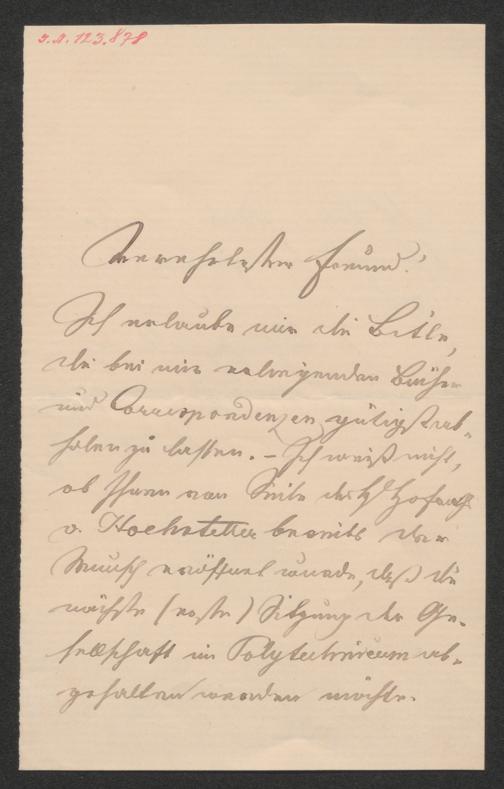 I.N. 123.878
Verehrtester Freund!
Ich erlaube mir die Bitte,
die bei mir erliegenden Bücher
und Correspondenzen gütigst ab-
holen zu lassen. – Ich weiß nicht,
ob Ihnen von Seite des H. Hofrath
v. Hochstetter bereits der
Wunsch eröffnet wurde, daß die
nächste (erste) Sitzung der Ge-
sellschaft im Polytechnicum ab-
gehalten werden möchte.